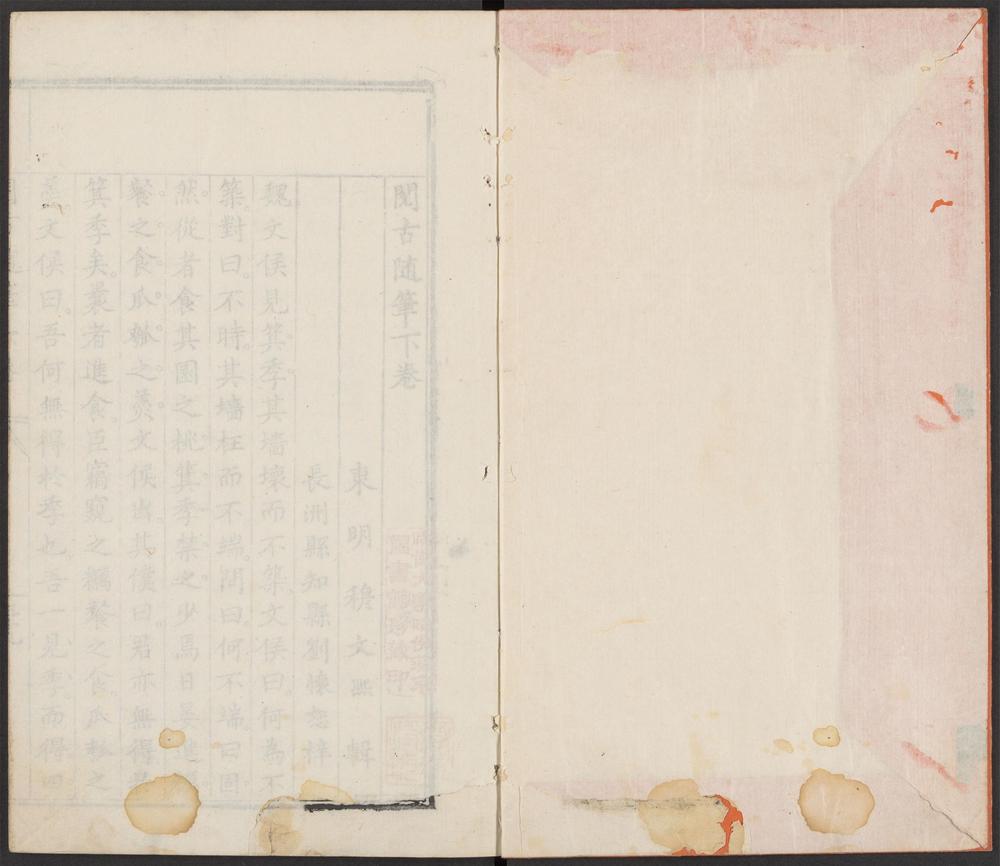 閱古随筆下卷
東明穆文熙輯
長洲縣知縣劉懷恕梓
魏文侯見箕季其墻壞而不築文侯曰何為不
築對曰不時其墻枉而不端問曰何不端曰固
然從者食其園之桃箕季禁之少焉日晏進糲
餐之食瓜瓠之羹文侯出其僕曰君亦無得於
箕季矣曩者進食臣竊窺之糲餐之食瓜瓠之
羹文侯曰吾何無得於季也吾一見季而得四